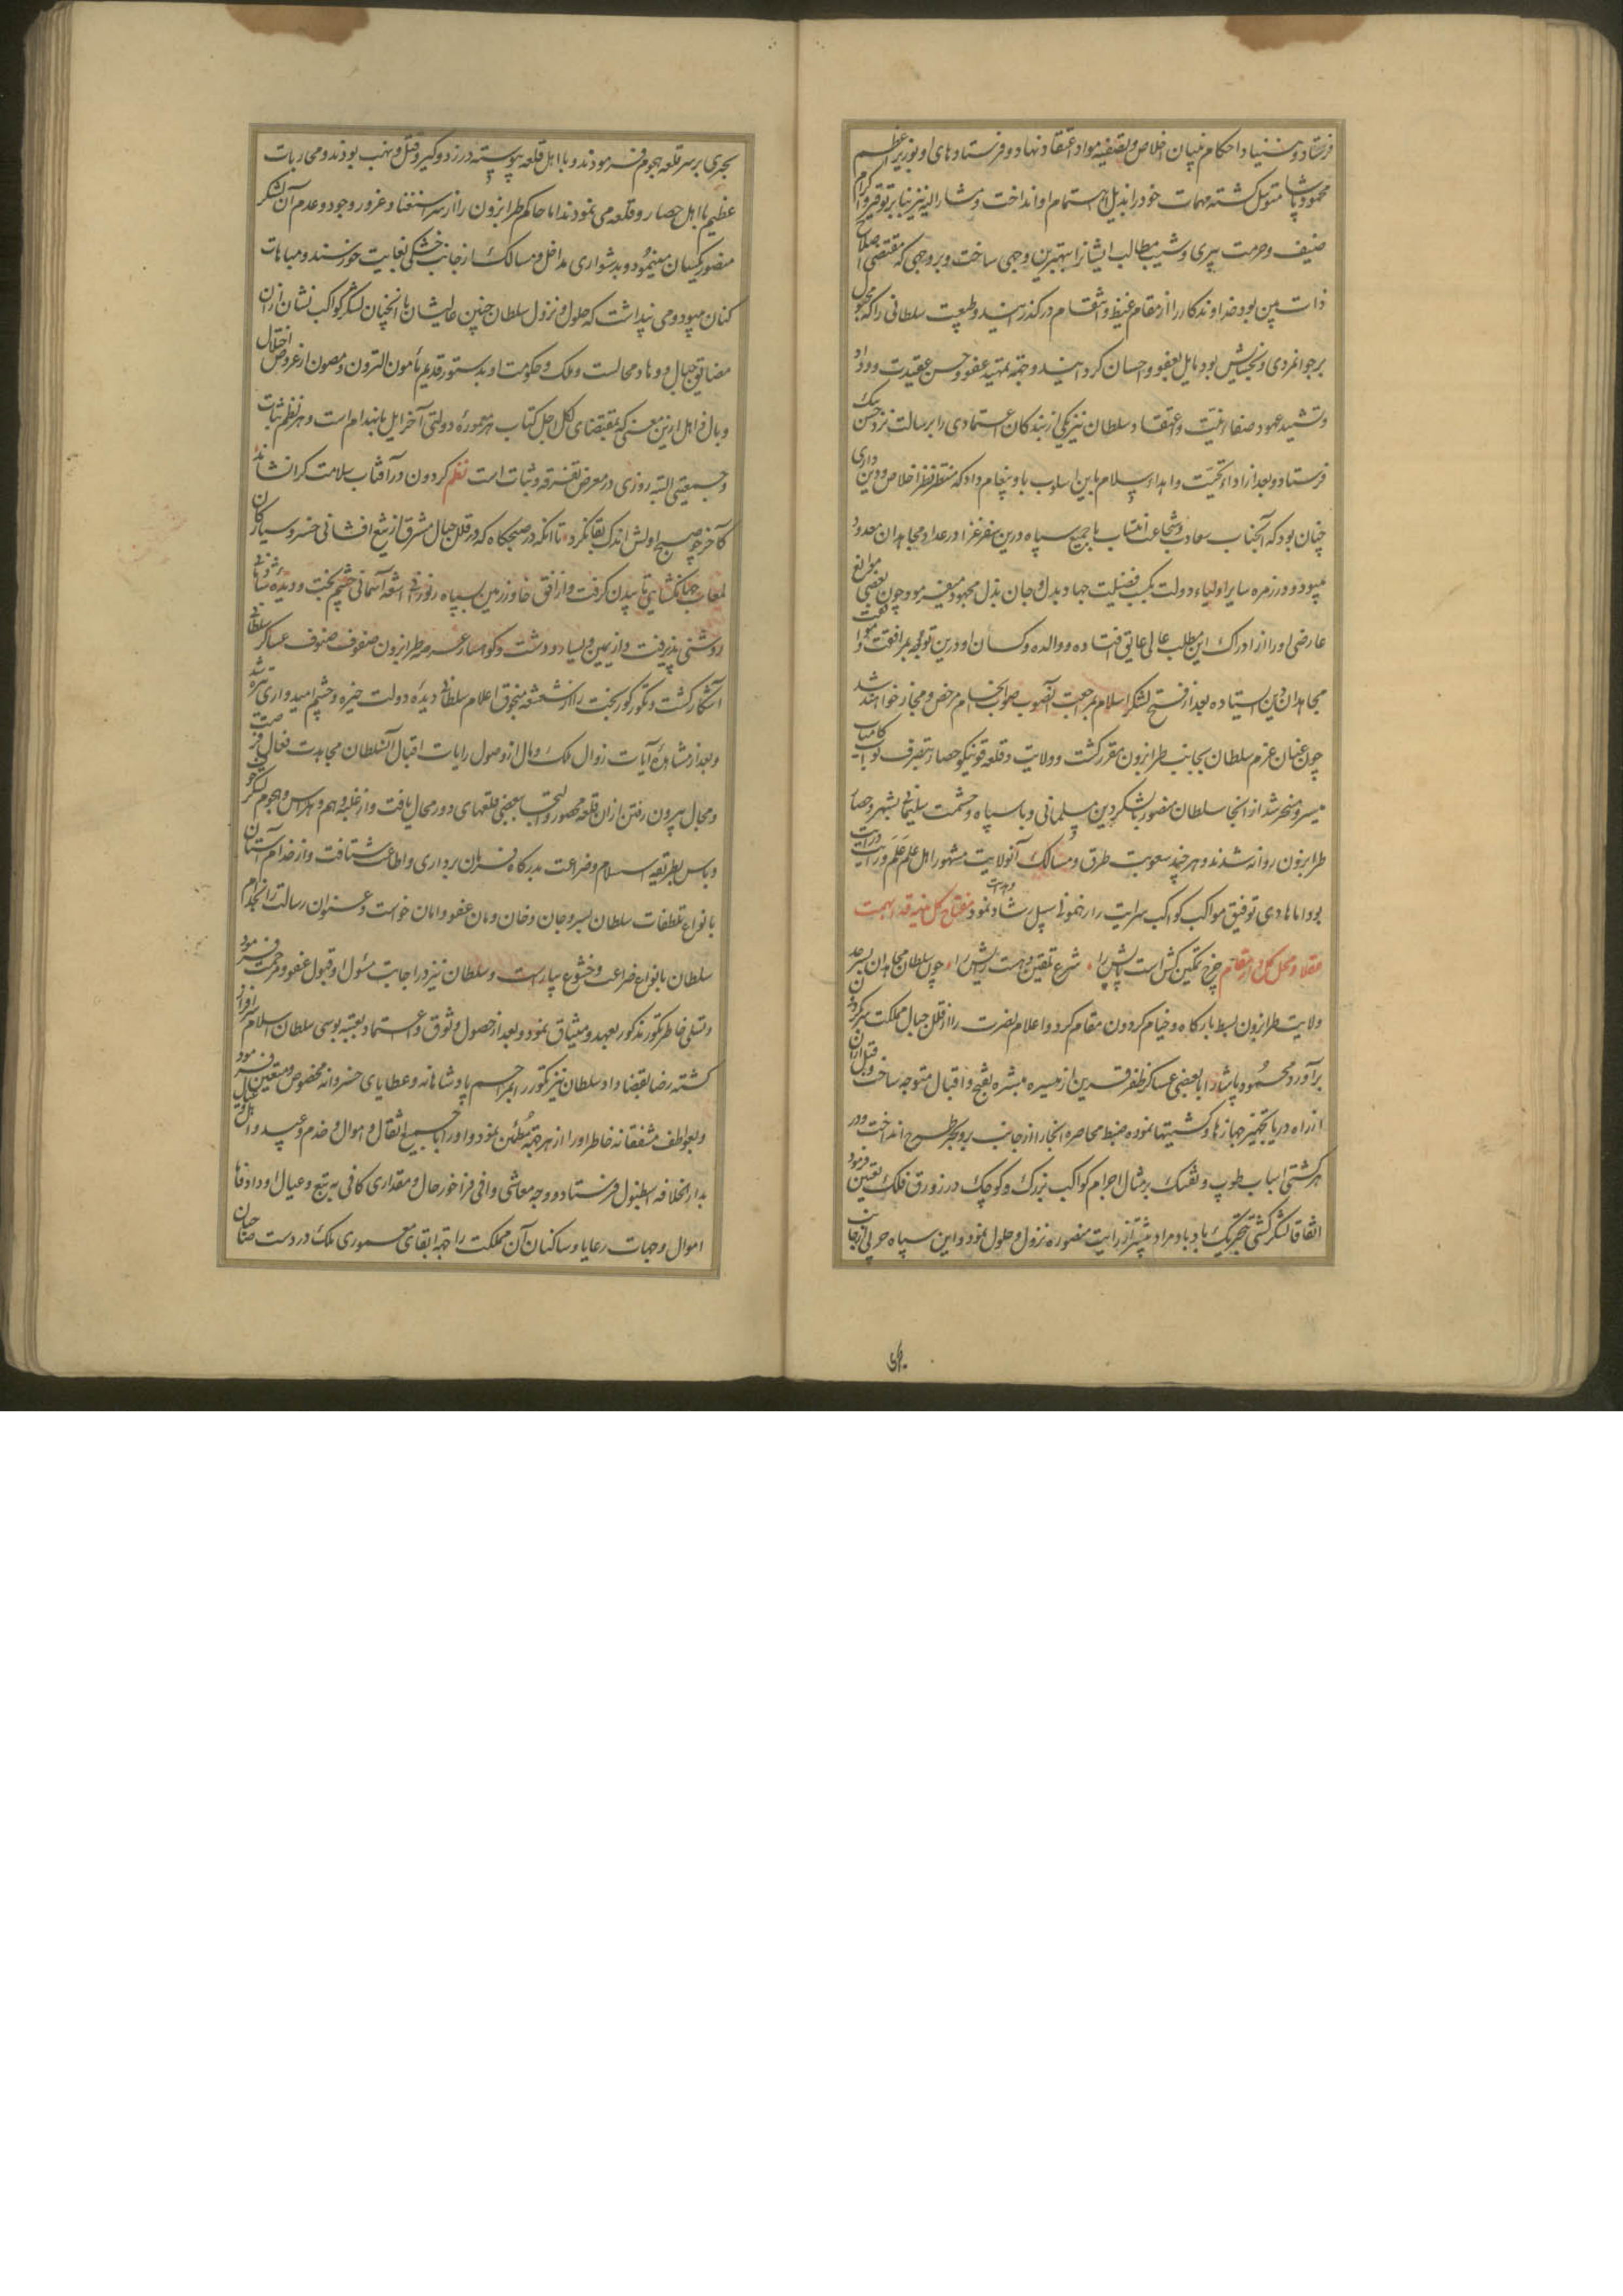 فرستاد و بنیاد احکام بنیان اخلاص و تصفیه مواد اعتقاد نهاد و فرستادهای او بوزیر اعظم
محمود پاشا متوسل گشته مهمات خود را بذیل اهتمام او انداخت و مشار الیه نیز بنابر توقیر و اکرام
ضیف و حرمت پیری و شیب مطالب ایشانرا بهترین وجهی ساخت و بر وجهی که مقتضی اصلاح
ذات بین بود خداوندکار را از مقام غیظ و انتقام در گذرانید و طبیعت سلطانی را که مجبول
بر جوانمردی و بخشایش بود مایل بعفو و احسان گردانید و جهة تمهید عفو و حسن عقیدت و وداد
و تشیید عهود صفاء نیت و اعتقاد سلطان نیز یکی از بندکان اعتمادی را برسالت نزد حسن بیک
فرستاد و بعد از اداء تحیت و اهداء سلام باین اسلوب باو پیغام داد که منتظر از فرط اخلاص و دین داری
چنان بود که آنجناب سعادت و شجاعت انتساب با جمیع سپاه درین سفر غزا در عداد مجاهدان معدود
میبود و در زمره سایر اولیاء دولت بکسب فضیلت جهاد بدل و جان بذل مجهود میفرمود چون بعضی موانع
عارضی او را از ادراک این مطلب عالی عایق افتاده و والده و کسان او درین توجه بمرافقت موافقت
مجاهدان دین ایستاده بعد از فتح لشکر اسلام بمراجعت آنصوب صواب انجام مرخص و مجاز خواهند شد
چون عنان عزم سلطان بجانب طرابزون مقرر گشت و ولایت و قلعه قوینلو حصار بتصرف نواب کامیاب
میسر و مسخر شد از انجا سلطان منصور با لشکر دین مسلمانی و با سپاه و حشمت سلیمانی بشهر و حصار
طرابزون روانه شدند و هر چند صعوبت طرق و مسالک آنولایت مشهور اهل علم علم و رایت و درایت
بود اما هادی توفیق مواکب کواکب سرایت را رهنمونی سبیل رشاد نمود مفتاح کل
چرخ تمکین کش است پایش را شرع تلقین ده است رایش را چون سلطان مجاهدان بسر حد
ولایت طرابزون بسط بارگاه و خیام گردون مقام کرد و اعلام نصرت را از قلل جبال مملکت سرکردان
برآورد محمود پاشا را با بعضی عساکر ظفر قرین از میسره مبشره بفتح و اقبال متوجه ساخت و قبل از آن
از راه دریا بتجهیز جهازها و کشتیها نموده ضبط محاصره انجا را از جانب بر و بحر طرح انداخت و در
هر کشتی اسباب طوپ و تفنک بر مثال اجرام کواکب بزرک و کوچک در زورق فلک تعیین فرمود
اتفاقا لشکر کشتی بحر یک باد باد مراد پیشتر از رایت منصوره نزول و حلول نمود و این سپاه حربی از جانب
بحری بر سر قلعه هجوم فرمودند و با اهل قلعه پیوسته در زد و گیر و قتل و نهب بودند و محاربات
عظیم با اهل حصار و قلعه می نمودند اما حاکم طرابزون را از سر استغنا و غرور وجود و عدم آن لشکر
منصور یکسان مینمود و بدشواری مداخل و مسالک از جانب خشکی بغایت خرسند و مباهات
کنان میبود و می پنداشت که حلول و نزول سلطان چنین عالیشان با انچنان لشکر کواکب نشان از ان
مضایق جبال و وهاد محالست و ملک و حکومت او بدستور قدیم مأمون الترون و مصون از عروض اختلال
و بال و اهل ازین معنی که بمقتضای لکل اجل کتاب هر معمورۀ دولتی آخر ایل بانهدام است و هر نظم ثبات
و جمعیتی البته روزی در معرض تفرقه و شتات است نظم گردون در آفتاب سلامت کرا نشاند
کآخر چو صبح اولش اندک بقا نکرد تا انکه در صبحگاه که در قلل جبال مشرق از تیغ افشانی خسرو سیارگان
لمعات جهانگشایی تابیدن گرفت و از افق خاور زمین سپاه نوروزی اشعۀ آسمانی چشم بخت و دیدۀ شادمانی
روشنی پذیرفت و از یمین و یسار دو دشت و کوهسار عرصه طرابزون صفوف صنوف عساکر سلطانی
آشکار گشت و تکور کور بخت را از شعشعه منجوق اعلام سلطانی دیدۀ دولت خیره و چشم امیدواری تیره شد
و بعد از مشاهدۀ آیات زوال ملک و بال از وصول رایات اقبال آن سلطان مجاهدت فعال فرصت
و مجال بیرون رفتن از ان قلعه محصور و التجا ببعضی قلعهای دور محال یافت و از غلبه وهم و هراس و هجوم لشکر
و باس بطریقه اسلام و ضراعت بدرگاه فرمان برداری و اطاعت شتافت و از خدام آستان
بانواع تلطفات سلطان بسر و جان و خان و مان عفو و امان خواست و عنوان رسالت را بخدام
سلطان بانواع ضراعت و خشوع بیاراست و سلطان نیز در اجابت مسئول او قبول عفو و مرحمت فرمود
و تسلی خاطر تکور مذکور بعهد و میثاق نمود و بعد از حصول وثوق و اعتماد بعتبه بوسی سلطان اسلام سرافراز
گشته رضا بقضا داد و سلطان نیز تکور را بمراحم پادشاهانه و عطایای خسروانه مخصوص و متعین فرمود
و بعواطف مشفقانه خاطر او را از هر جهة مطمئن نمود و او را با جمیع اثقال و اموال و خدم و عبید و اهل و عیال
بدار الخلافه اسطنبول فرستاد و وجه معاشی وافی فراخور حال و مقداری کافی به تبع و عیال او داد و اما
اموال و جهات رعایا و ساکنان آن مملکت را جهة ابقای معموری ملک در دست صاحبان